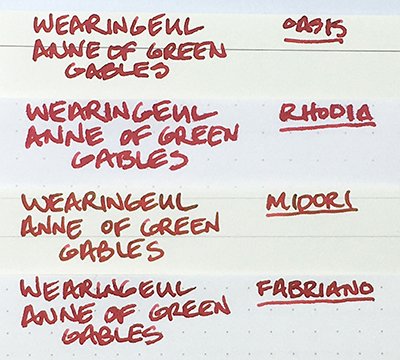 WEARINGEUL OASIS
ANNE OF GREEN
GABLES
WEARINGEUL RHODIA
ANNE OF GREEN
GABLES
WEARINGEUL MIDORI
ANNE OF GREEN
GABLES
WEARINGEUL FABRIANO
ANNE OF GREEN
GABLES